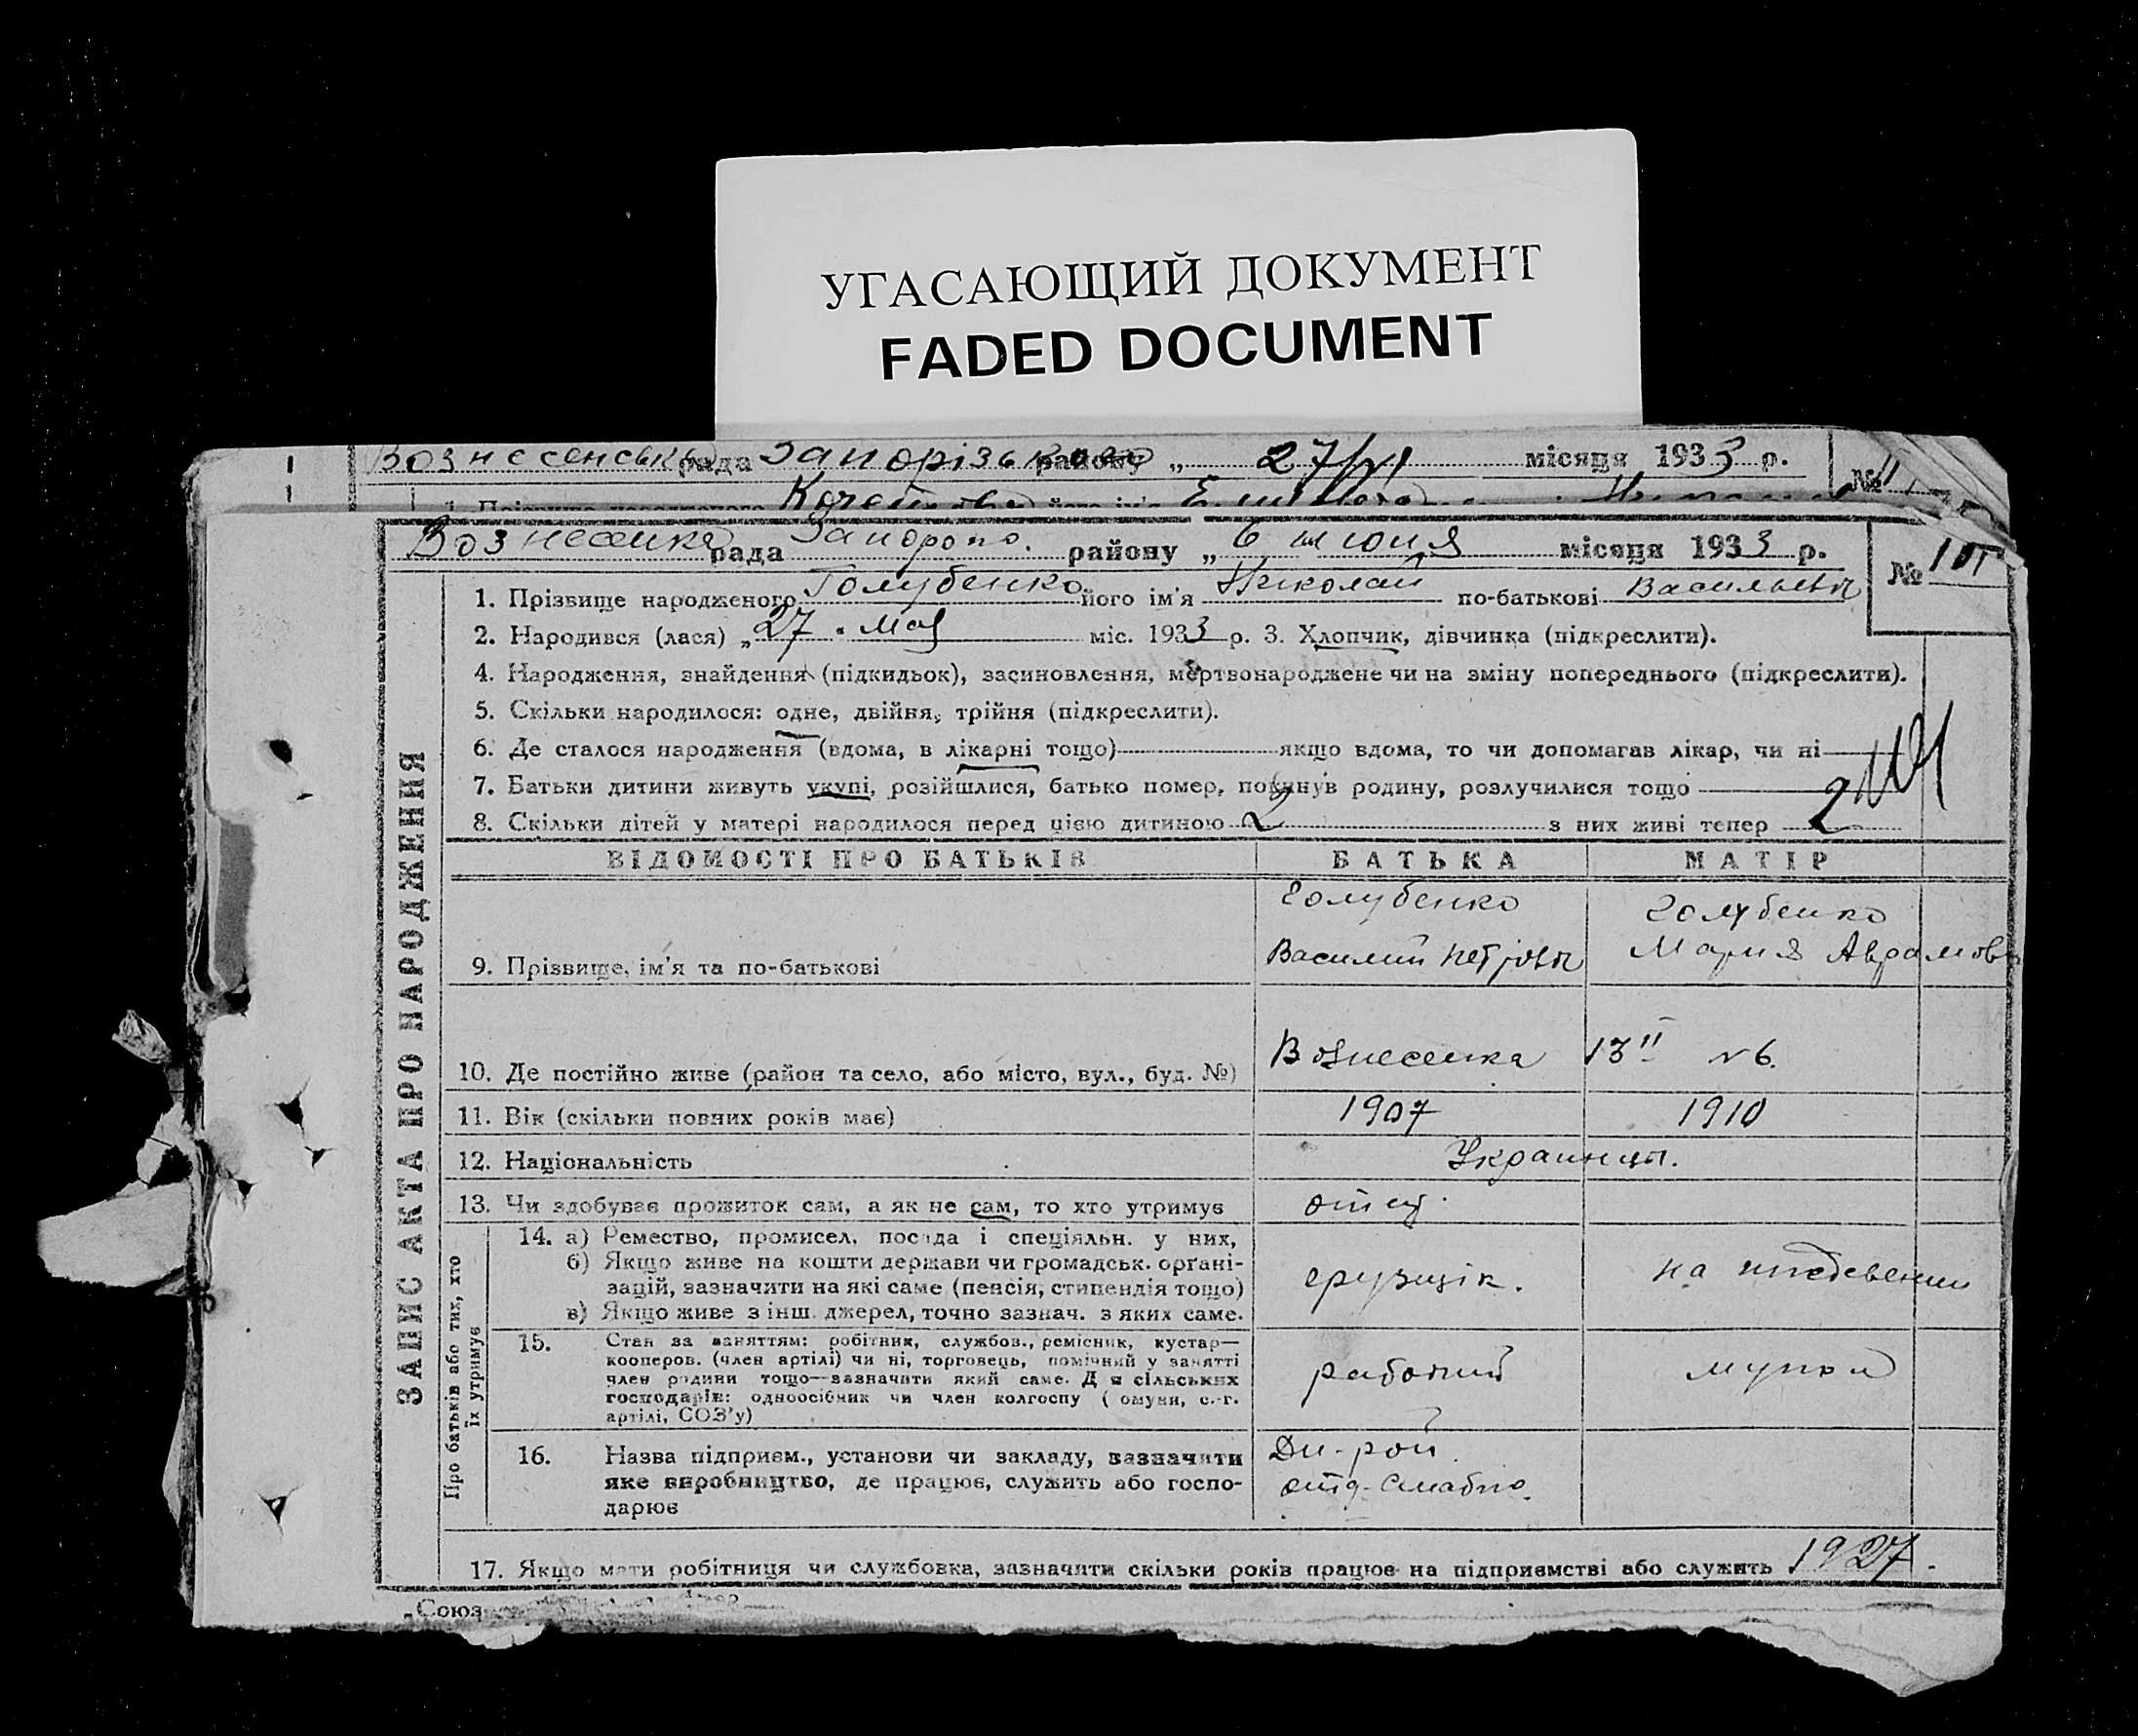 УГАСАЮЩИЙ ДОКУМЕНТ
FADED DOCUMENT
Вознесенська рада Запорізького району „ 27/VI місяця 1933 р. №
Вознесенка рада Запоро. району „ 6 июня місяця 1933 р.
№ 101
1. Прізвище народженого Голубенко його ім'я Николай по-батькові Васильевич
2. Народився (лася) „ 27 " мая міс. 1933 р. 3. Хлопчик, дівчинка (підкреслити).
4. Народження, знайдення (підкидьок), засиновлення, мертвонароджене чи на зміну попереднього (підкреслити).
5. Скільки народилося: одне, двійня, трійня (підкреслити).
6. Де сталося народження (вдома, в лікарні тощо) якщо вдома, то чи допомагав лікар, чи ні
7. Батьки дитини живуть укупі, розійшлися, батько помер, покинув родину, розлучилися тощо
8. Скільки дітей у матері народилося перед цією дитиною 2 з них живі тепер 2
ЗАПИС АКТА ПРО НАРОДЖЕННЯ
ВІДОМОСТІ ПРО БАТЬКІВ БАТЬКА МАТІР
Голубенко Голубенко
9. Прізвище, ім'я та по-батькові Василий Петрович Мария Аврамовн
10. Де постійно живе (район та село, або місто, вул., буд. №) Вознесенка 13 " N 6.
11. Вік (скільки повних років має) 1907 1910
12. Національність Украинцы.
13. Чи здобуває прожиток сам, а як не сам, то хто утримує отец.
Про батьків або тих, хто їх утримує
14. а) Ремество, промисел, посада і спеціяльн. у них,
б) Якщо живе на кошти держави чи громадськ. орґані-
зацій, зазначити на які саме (пенсія, стипендія тощо)
в) Якщо живе з інш. джерел, точно зазнач. з яких саме.
грузчік. на иждевении
15. Стан за заняттям: робітник, службов., ремісник, кустар—
кооперов. (член артілі) чи ні, торговець, помічний у занятті
член родини тощо—зазначити який саме. Для сільських
господарів: одноосібник чи член колгоспу (комуни, с.-г.
артілі, СОЗ'у)
рабочий мужа
16. Назва підприєм., установи чи закладу, зазначити
яке виробництво, де працює, служить або госпо-
дарює
Дн-рой
отд-Снабже.
17. Якщо мати робітниця чи службовка, зазначити скільки років працює на підприємстві або служить 1927.
„Союз